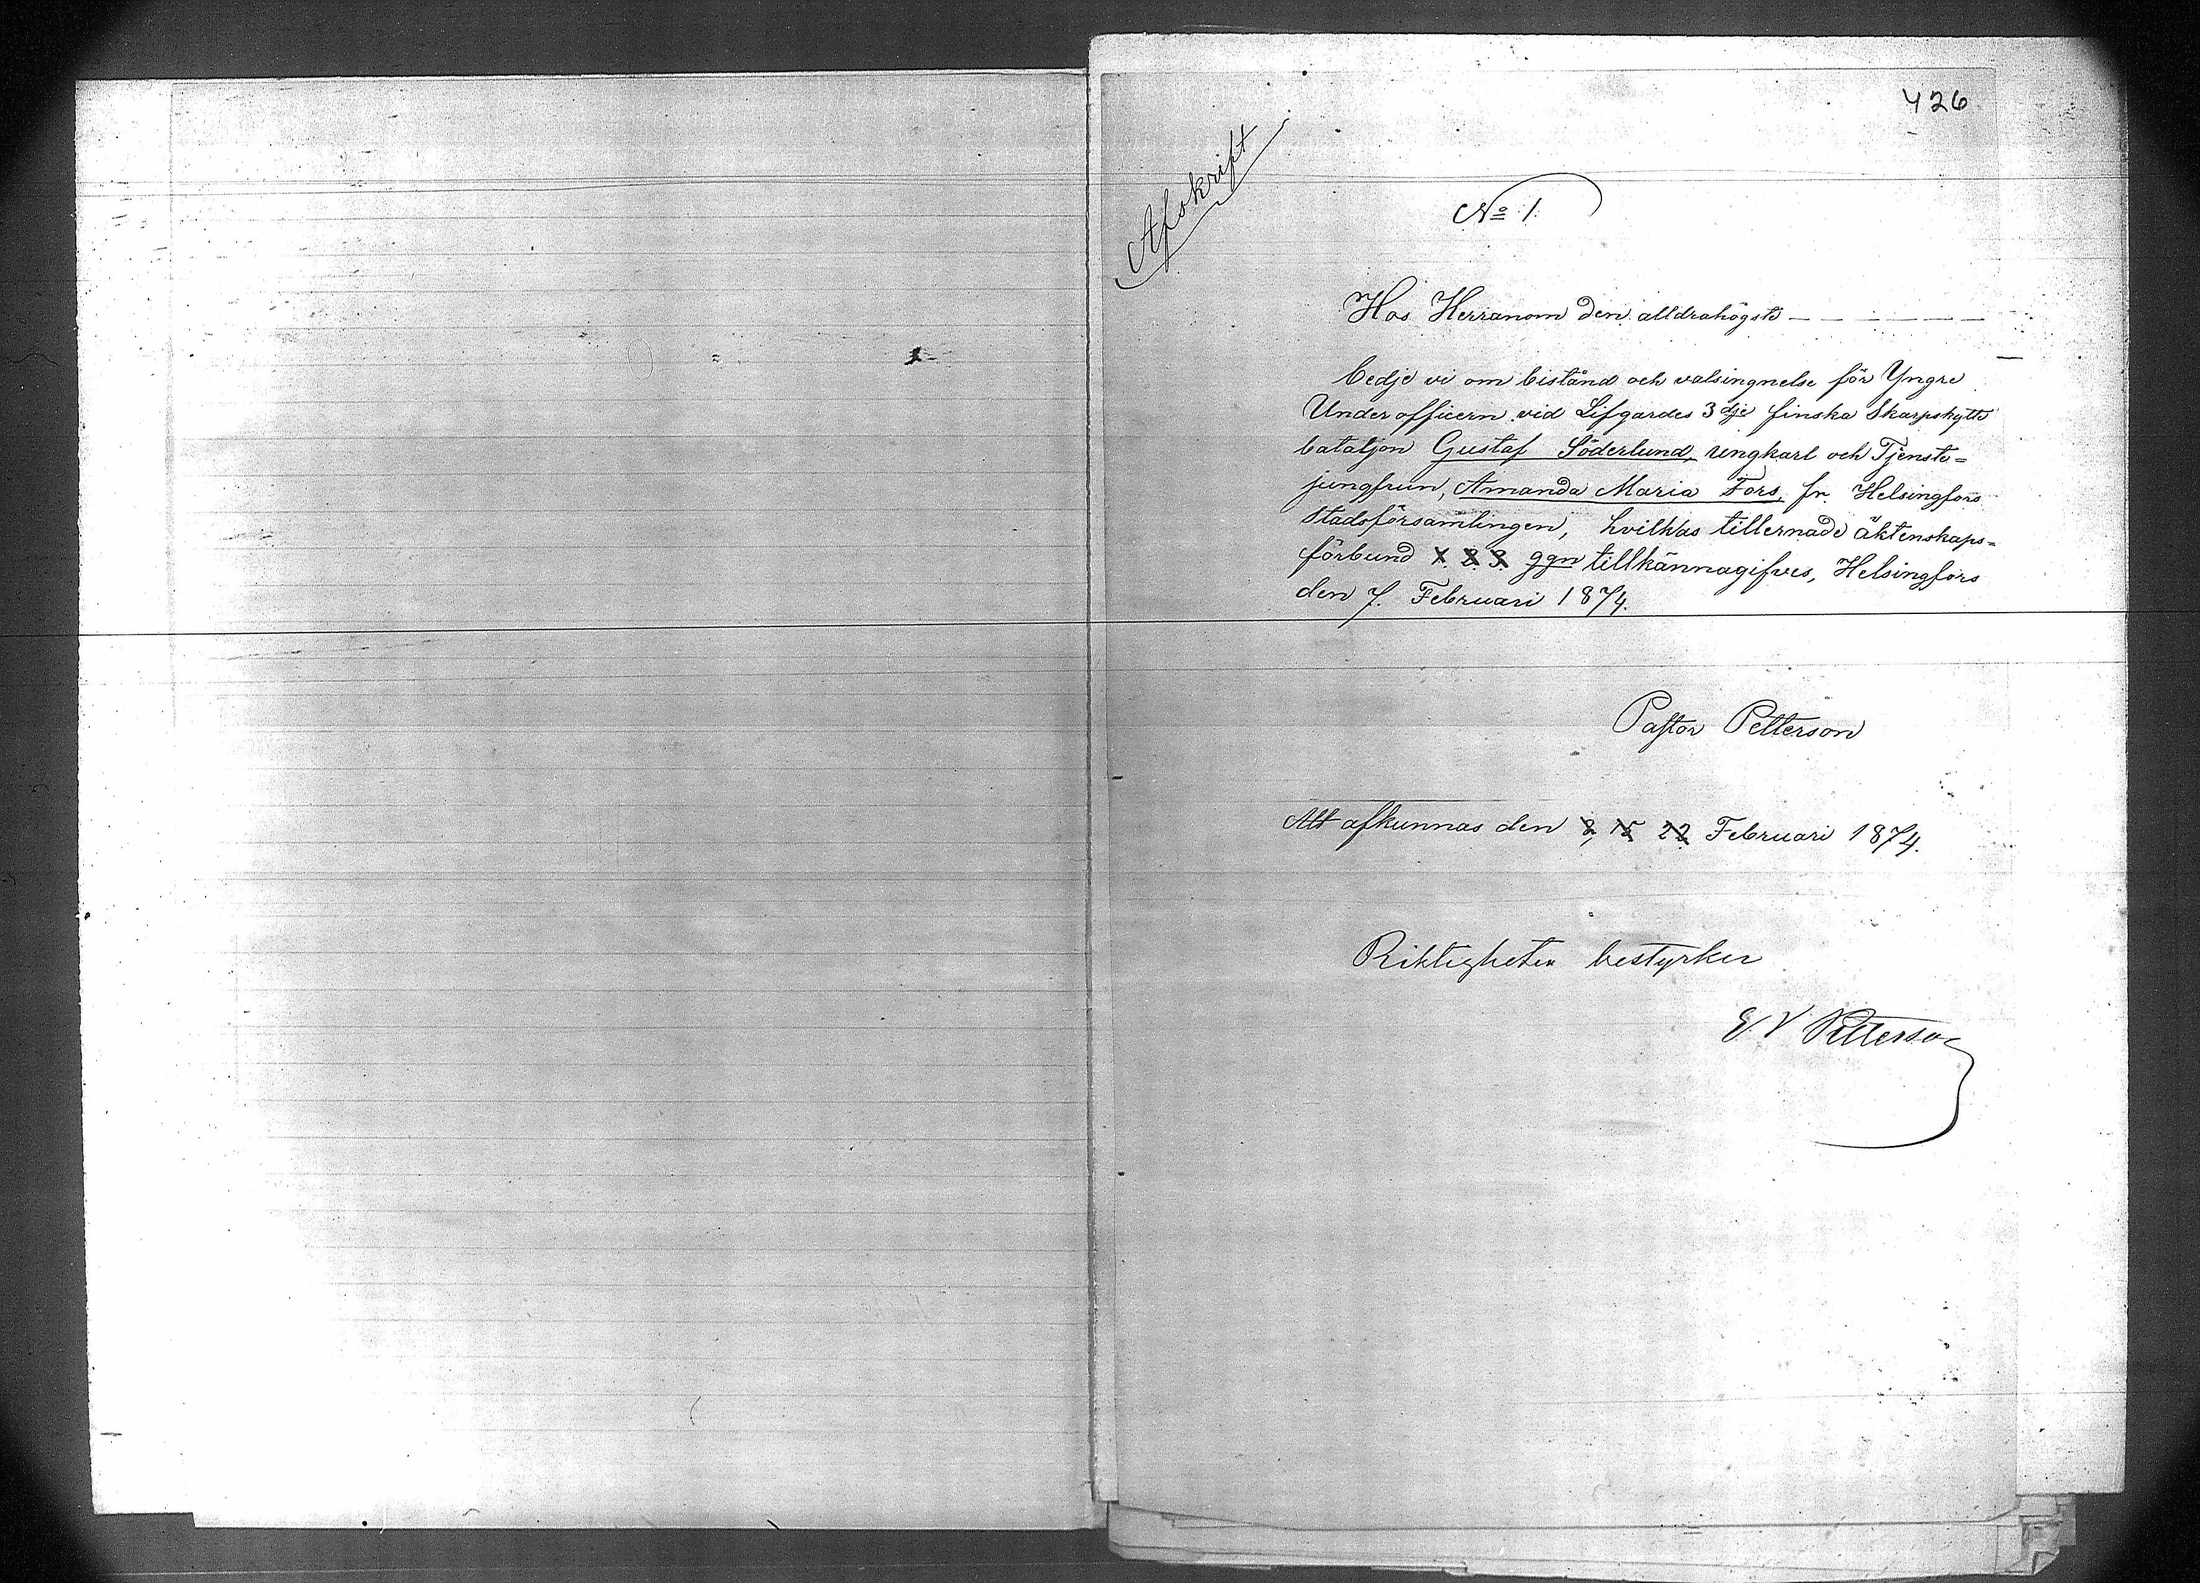 426
Afskrift
No 1.
Hos Herranom den alldrahögste
bedje vi om bistånd och valsingnelse för Yngre
Underofficern vid Lifgardes 3dje finska Skarpskytte
bataljon Gustaf Söderlund, ungkarl och Tjenste=
jungfrun, Amanda Maria Fors, fr. Helsingfors
Stadsförsamlingen, hvilkas tillernade äktenskaps=
förbund 1. 2. 3. ggn tillkännagifves, Helsingfors
den 7. Februari 1874.
Pastor Petterson
Att afkunnas den 8, 15 22 Februari 1874.
Riktigheten bestyrker
E. V Petterson